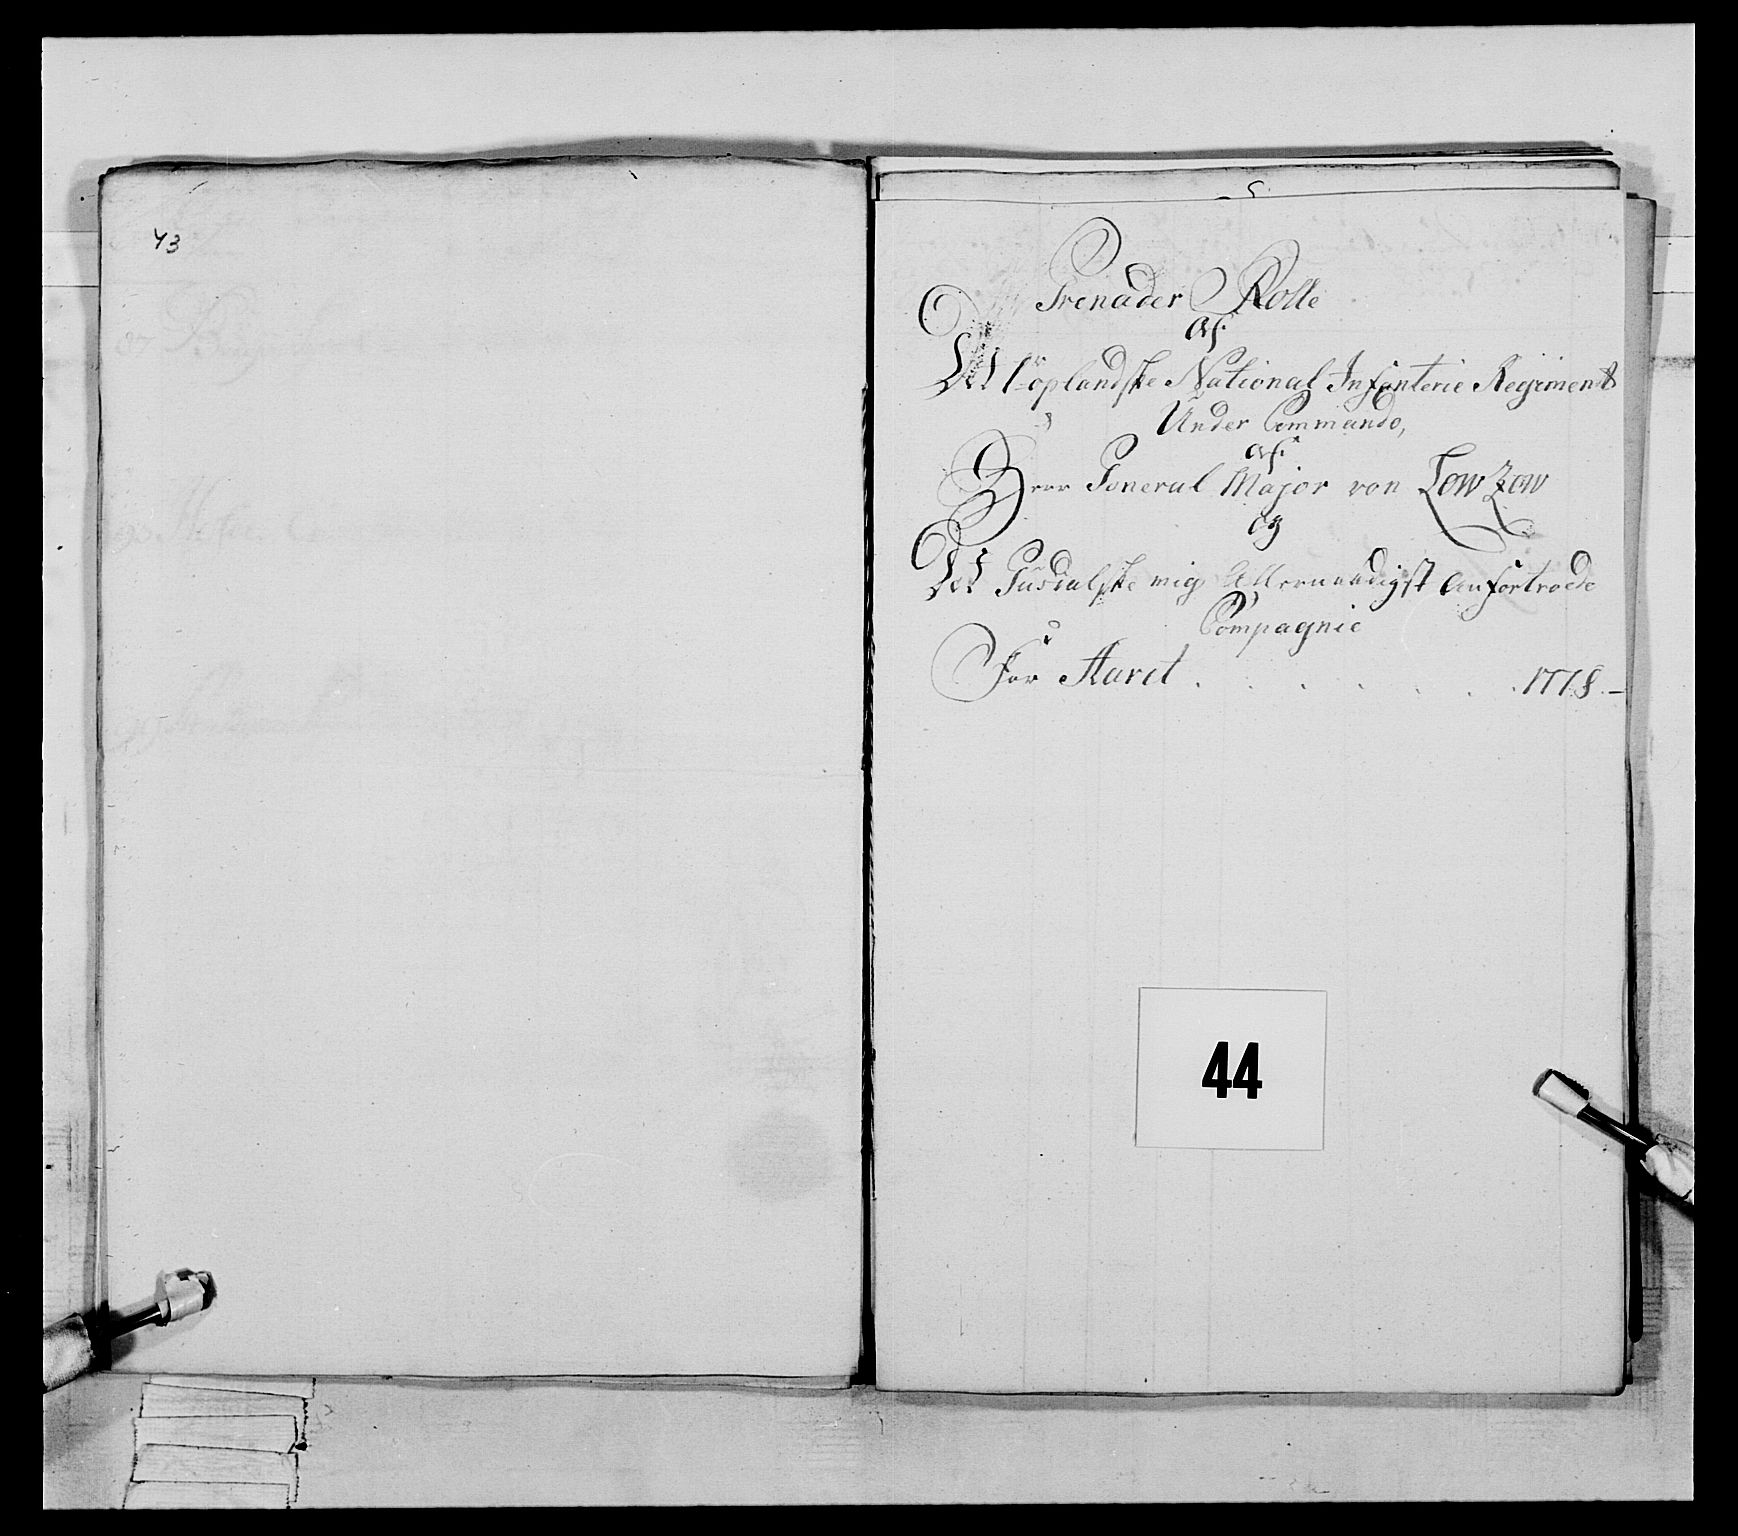 43
Grenader Rolle
Af
Det Oplandske National Infanterie Regiment
Under Commando,
af
Herr General Major von Lowzow
Og
Det Gusdalske mig Allernaadigst Anfortroede
Compagnie
For Aaret . . . . . . . 1778.
44